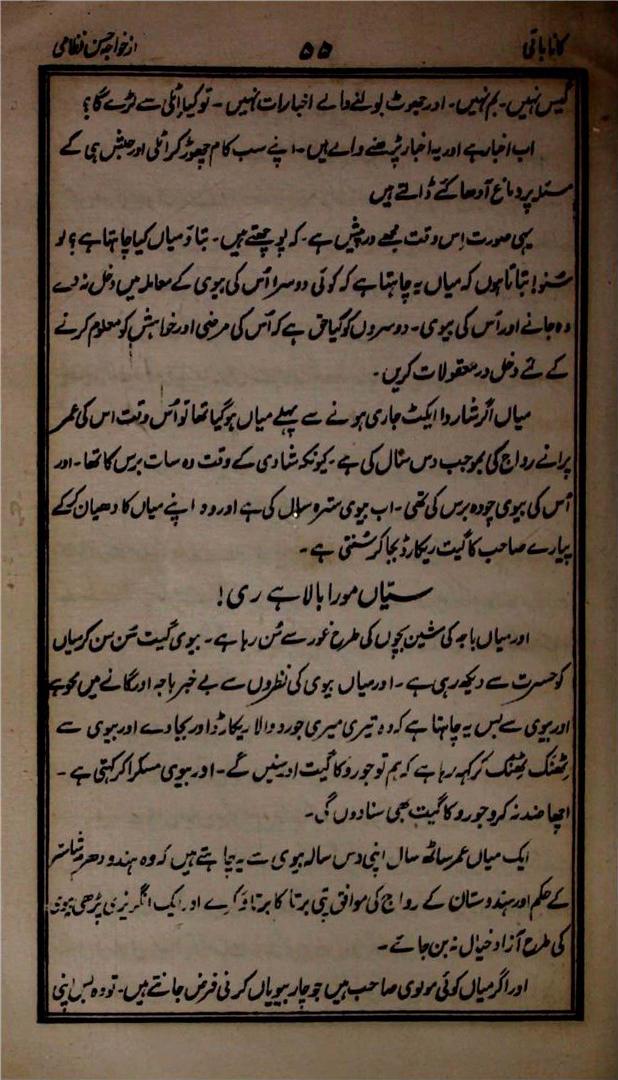 کانا باتی ۵۵ از خواجہ حسن نظامی
گیس نہیں۔ بم نہیں۔ اور جھوٹ بولنے والے اخبارات نہیں۔ تو کیا اٹلی سے لڑے گا؟
اب اخبار ہے اور یہ اخبار پڑھنے والے ہیں۔ اپنے سب کام چھوڑ کر اٹلی اور حبش ہی کے
مسئلہ پر دماغ آدھا کئے ڈالتے ہیں
یہی صورت اس وقت مجھے درپیش ہے۔ کہ پوچھتے ہیں۔ بتاؤ میاں کیا چاہتا ہے؟ لو
سُنو! بتاتا ہوں کہ میاں یہ چاہتا ہے کہ کوئی دوسرا اُس کی بیوی کے معاملہ میں دخل نہ دے
وہ جانے اور اُس کی بیوی۔ دوسروں کو کیا حق ہے کہ اُس کی مرضی اور خواہش کو معلوم کرنے
کے لئے دخل در معقولات کریں۔
میاں اگر شاردا ایکٹ جاری ہونے سے پہلے میاں ہو گیا تھا تو اُس وقت اس کی عمر
پرانے رواج کی بموجب دس سال کی ہے۔ کیونکہ شادی کے وقت وہ سات برس کا تھا۔ اور
اُس کی بیوی چودہ برس کی تھی۔ اب بیوی سترہ سال کی ہے اور وہ اپنے میاں کا دھیان کرکے
پیارے صاحب کا گیت ریکارڈ بجا کر سُنتی ہے۔
سیّاں مورا بالا ہے ری!
اور میاں باجہ کی مشین بچوں کی طرح غور سے سُن رہا ہے۔ بیوی گیت سُن سن کر میاں
کو حسرت سے دیکھ رہی ہے۔ اور میاں بیوی کی نظروں سے بے خبر باجہ اور گانے میں محو ہے
اور بیوی سے بس یہ چاہتا ہے کہ وہ تیری میری جورو والا ریکارڈ اور بجا دے اور بیوی سے
ٹھنک ٹھنک کر کہہ رہا ہے کہ ہم تو جورو کا گیت اور سنیں گے۔ اور بیوی مسکرا کر کہتی ہے۔
اچھا ضد نہ کرو جورو کا گیت بھی سنا دوں گی۔
ایک میاں عمر ساٹھ سال اپنی دس سالہ بیوی سے یہ چاہتے ہیں کہ وہ ہندو دھرم شاستر
کے حکم اور ہندوستان کے رواج کی موافق پتی برتا کا برتاؤ کرے اور ایک انگریزی پڑھی بیوی
کی طرح آزاد خیال نہ بن جائے۔
اور اگر میاں کوئی مولوی صاحب ہیں جو چار بیویاں کرنی فرض جانتے ہیں۔ تو وہ بس اپنی